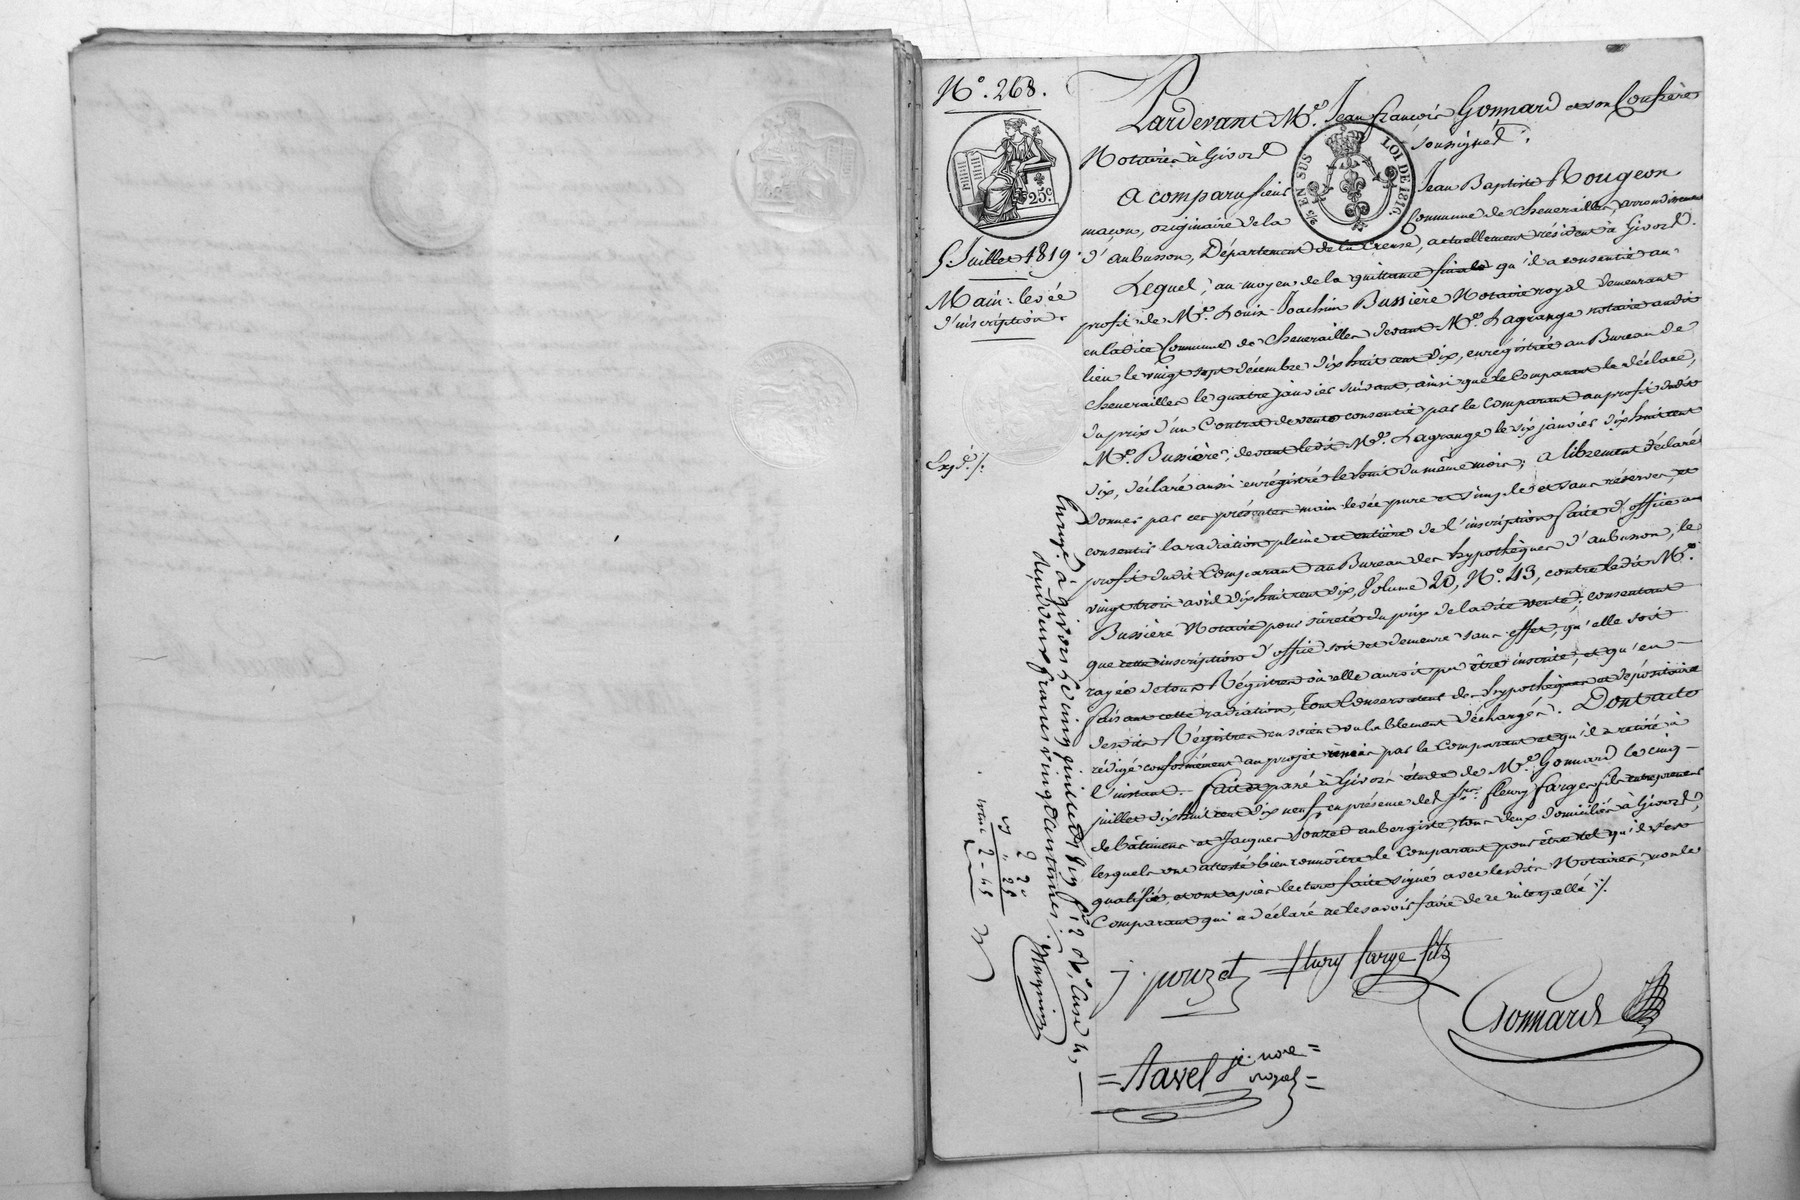 N.º 268.
25.c
5. Juillet 1819.
Main-levée
d'inscription.
Exp.d ./.
Pardevant M.e Jean françois Gonnard et son Confrère
Notaires à Givors soussignés ;
LOI DE 1816.
EN SUS
A comparu sieur Jean Baptiste Rougeon
maçon, originaire de la Commune de Chenerailles, arrondissement
d'aubusson, Département de la Creuse, actuellement résident à Givors.
Lequel, au moyen de la quittance finale qu'il a consentie au
profit de M.e Louis Joachim Bussière Notaire royal demeurant
en la dite Commune de Chenerailles devant M.e Lagrange notaire audit
lieu le vingt sept décembre dix huit cent dix, enregistrée au Bureau de
Chenerailles le quatre janvier suivant, ainsi que le Comparant le déclare,
du prix d'un Contrat de vente consentie par le Comparant au profit dudit
M.e Bussière, devant ledit M.e Lagrange le six janvier dix huit cent
dix, déclaré aussi enrégistré le huit du même mois ; a librement déclaré
donner par ces présentes main-levée pure et simple et sans réserves, et
consentir la radiation pleine et entière de l'inscription faite d'office au
profit dudit Comparant au Bureau des hypothèques d'aubusson, le
vingt trois avril dix huit cent dix, Volume 20, N.º 43, contre ledit M.e
Bussière Notaire pour sûreté du prix de la dite vente ; consentant
que cette inscription d'office soit et demeure sans effet, qu'elle soit
rayée de tous Régistres où elle auroit pu être inscrite, et qu'en
faisant cette radiation, tout Conservateur des hypothèques et dépositaire
desdits Régistres en soient valablement déchargés. Dont acte
rédigé conformément au projet remis par le Comparant et qu'il a retiré à
l'instant. fait et passé à Givors étude de M.e Gonnard le cinq
juillet dix huit cent dix neuf, en présence des s.rs fleury farge fils entrepreneur
de bâtimens et Jacques Pouzet aubergiste, tous deux domiciliés à Givors,
lesquels ont attesté bien connoître le Comparant pour être tel qu'il s'est
qualifié, et ont après lecture faite signé avec lesdits Notaires, non le
Comparant qui a déclaré ne le savoir faire de ce interpellé ./.
j. pouzet fleury farge fils
Gonnard
= Navel
Enreg.é à givors le cinq juillet 1819 f.º 2 v.º Case 4,
deux francs vingt centimes.